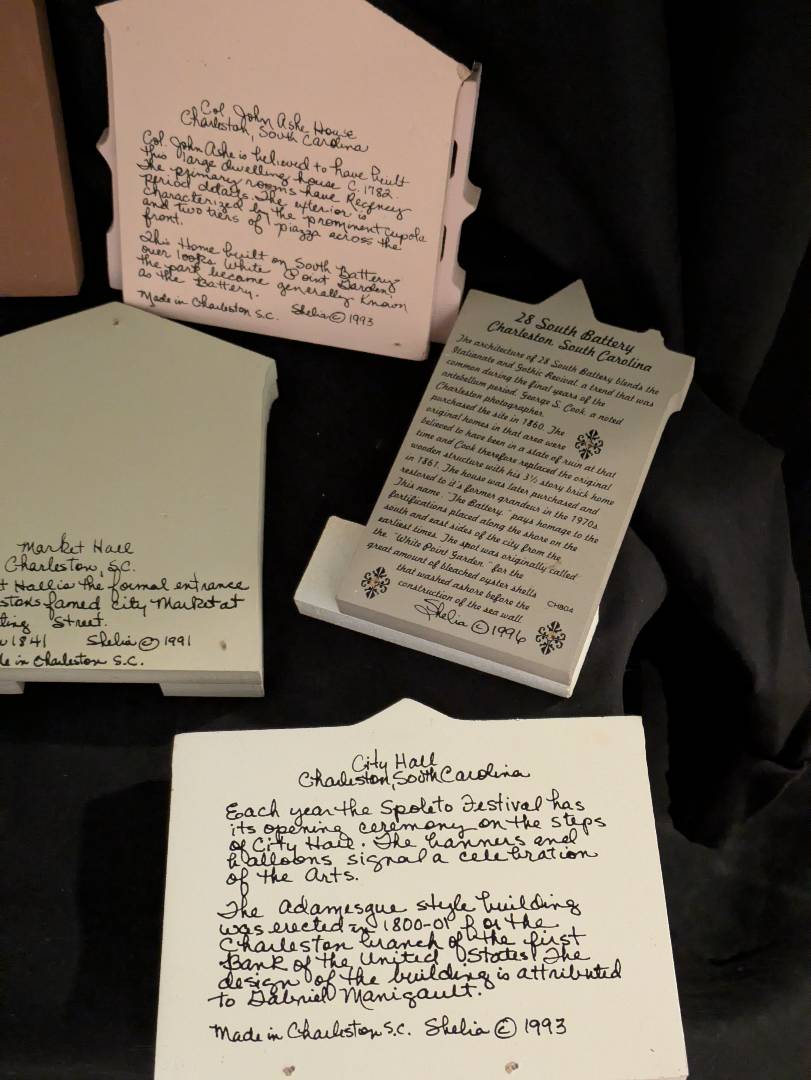 Col. John Ashe House
Charleston, South Carolina
Col. John Ashe is believed to have built
this large dwelling house C. 1782.
The primary rooms have Regency
period details. The exterior is
characterized by the prominent cupola
and two tiers of piazza across the
front.
This Home built on South Battery
over looks White Point Garden;
the park became generally known
as the Battery.
Made in Charleston S.C. Shelia © 1993
28 South Battery
Charleston South Carolina
The architecture of 28 South Battery blends the
Italianate and Gothic Revival, a trend that was
common during the final years of the
antebellum period. George S. Cook, a noted
Charleston photographer,
purchased the site in 1860. The
original homes in that area were
believed to have been in a state of ruin at that
time and Cook therefore replaced the original
wooden structure with his 3½ story brick home
in 1861. The house was later purchased and
restored to it's former grandeur in the 1970s.
This name, "The Battery," pays homage to the
fortifications placed along the shore on the
south and east sides of the city from the
earliest times. The spot was originally called
the "White Point Garden" for the
great amount of bleached oyster shells
that washed ashore before the
construction of the sea wall.
CHS04
Shelia © 1996
Market Hall
Charleston, S.C.
t Hall is the formal entrance
ston's famed City Market at
ting Street.
1841 Shelia © 1991
de in Charleston S.C.
City Hall
Charleston, South Carolina
Each year the Spoleto Festival has
its opening ceremony on the steps
of City Hall. The banners and
balloons signal a celebration
of the Arts.
The Adamesque style building
was erected in 1800-01 for the
Charleston branch of the first
Bank of the United States. The
design of the building is attributed
to Gabriel Manigault.
Made in Charleston S.C. Shelia © 1993